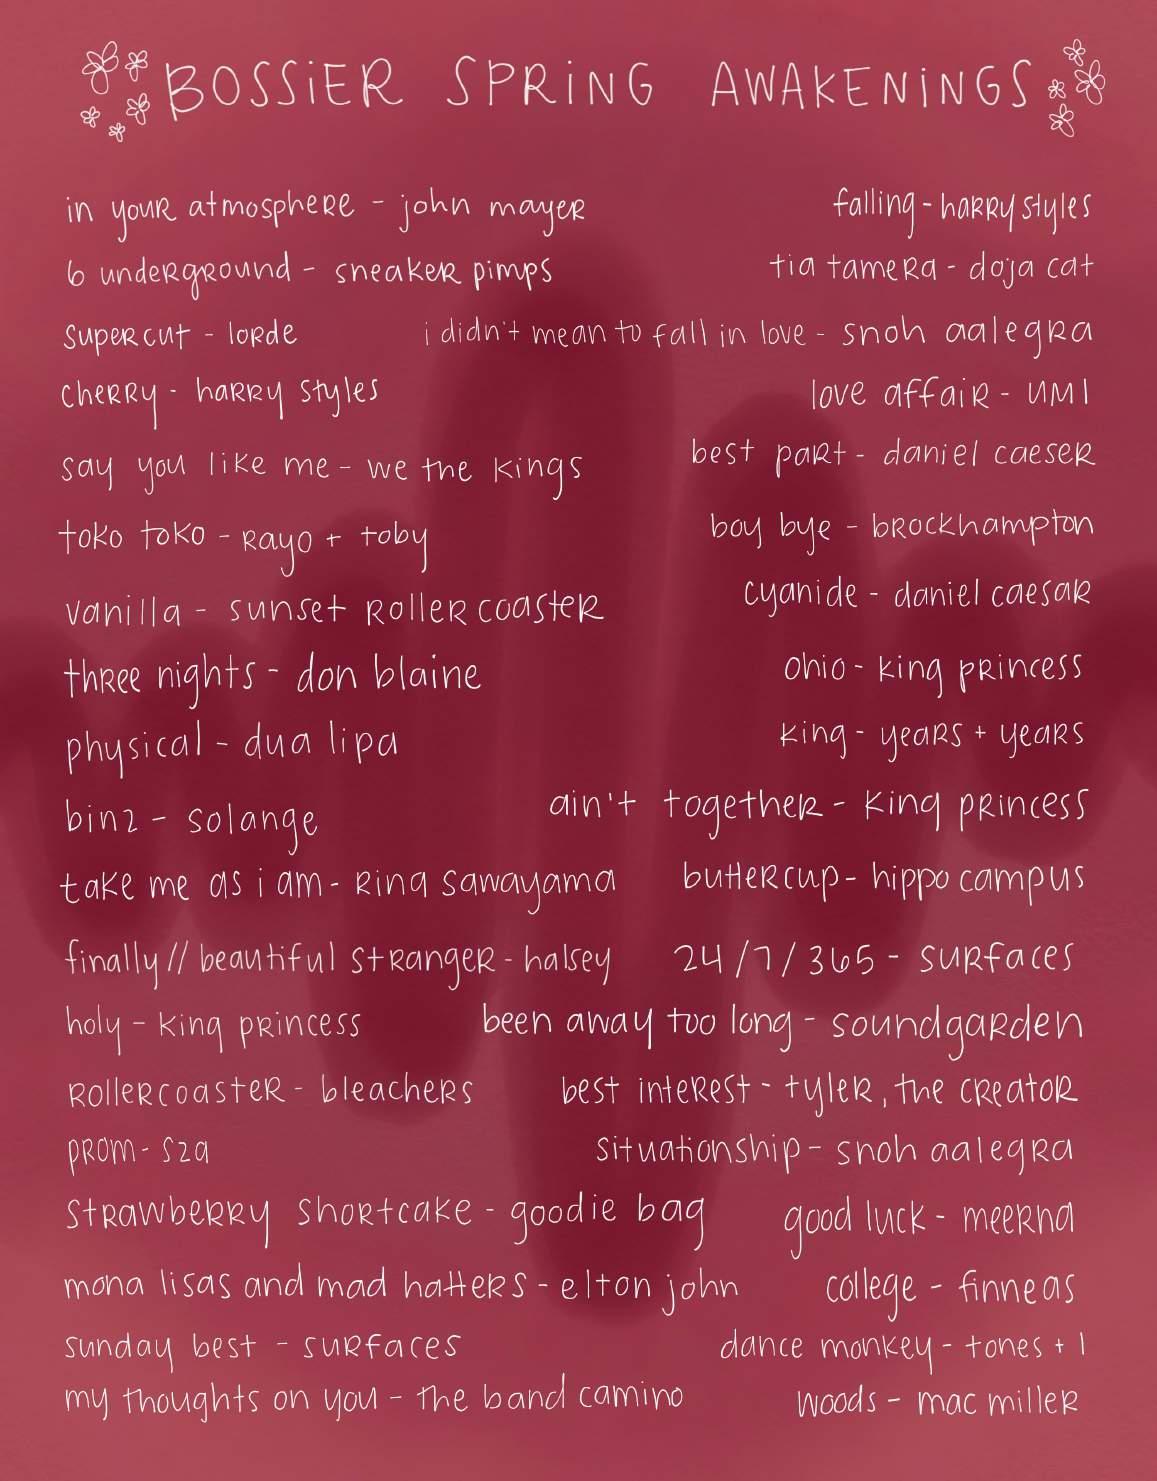 BOSSIER SPRING AWAKENINGS
in your atmosphere - john mayer
6 underground - sneaker pimps
supercut - lorde
cherry - harry styles
say you like me - we the kings
toko toko - rayo + toby
vanilla - sunset rollercoaster
three nights - don blaine
physical - dua lipa
binz - solange
take me as i am - rina sawayama
finally // beautiful stranger - halsey
holy - king princess
rollercoaster - bleachers
prom - sza
strawberry shortcake - goodie bag
mona lisas and mad hatters - elton john
sunday best - surfaces
my thoughts on you - the band camino
falling - harry styles
tia tamera - doja cat
i didn't mean to fall in love - snoh aalegra
love affair - UMI
best part - daniel caeser
boy bye - brockhampton
cyanide - daniel caesar
ohio - king princess
king - years + years
ain't together - king princess
buttercup - hippo campus
24/7/365 - surfaces
been away too long - soundgarden
best interest - tyler, the creator
situationship - snoh aalegra
good luck - meerna
college - finneas
dance monkey - tones + I
woods - mac miller